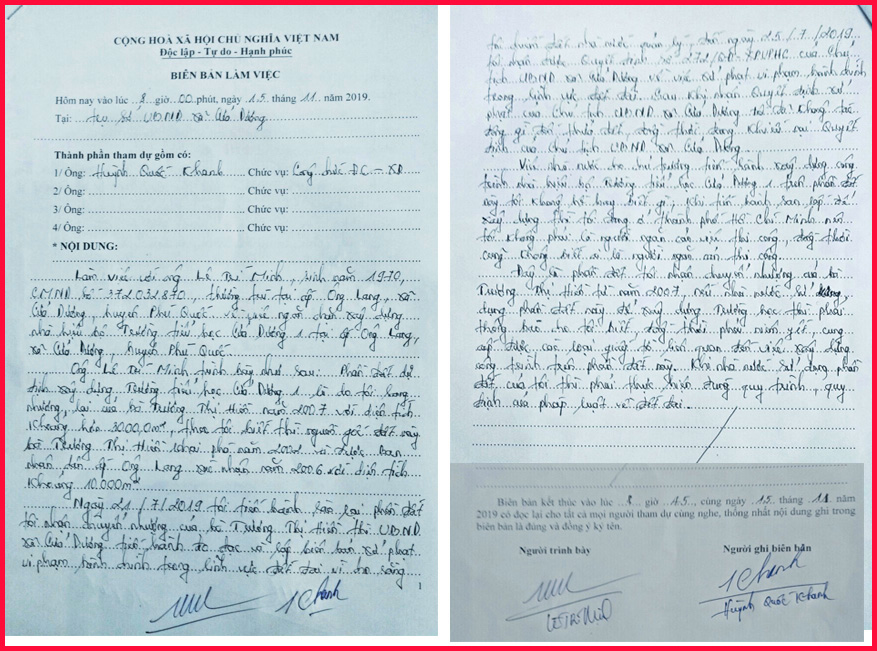 CỘNG HOÀ XÃ HỘI CHỦ NGHĨA VIỆT NAM
Độc lập - Tự do - Hạnh phúc
BIÊN BẢN LÀM VIỆC
Hôm nay vào lúc 8 giờ 00 phút, ngày 15 tháng 11 năm 2019.
Tại: trụ sở UBND xã Cửa Dương
Thành phần tham dự gồm có:
1/ Ông: Huỳnh Quốc Khanh Chức vụ: Công chức ĐC - XD
2/ Ông: Chức vụ:
3/ Ông: Chức vụ:
4/ Ông: Chức vụ:
* NỘI DUNG:
Làm việc với ông Lê Trí Minh, sinh năm 1970,
CMND số 372032870, thường trú tại ấp Ông Lang, xã
Cửa Dương, huyện Phú Quốc về việc ngăn cản xây dựng
nhà hiệu bộ Trường tiểu học Cửa Dương 1 tại ấp Ông Lang,
xã Cửa Dương, huyện Phú Quốc.
Ông Lê Trí Minh trình bày như sau: Phần đất dự
định xây dựng Trường tiểu học Cửa Dương 1 là do tôi sang
nhượng lại của bà Trương Thị Hiền năm 2007 với diện tích
khoảng hơn 3000m², theo tôi biết thì nguồn gốc đất này
bà Trương Thị Hiền khai phá năm và được ban
nhân dân ấp Ông Lang xác nhận năm 2006 với diện tích
khoảng 10.000m²
Ngày 21/7/2019 tôi tiến hành rào lại phần đất
tôi nhận chuyển nhượng của bà Trương Thị Hiền thì UBND
xã Cửa Dương tiến hành đo đạc và lập biên bản xử phạt
vi phạm hành chính trong lĩnh vực đất đai vì cho rằng
1
Khanh
tôi chiếm đất nhà nước quản lý, đến ngày 25/7/2019
tôi nhận được Quyết định số 272/QĐ-XPVPHC của Chủ
tịch UBND xã Cửa Dương về việc xử phạt vi phạm hành chính
trong lĩnh vực đất đai. Sau khi nhận Quyết định xử
phạt của Chủ tịch UBND xã Cửa Dương tôi đã không tác
động gì đến thửa đất, đồng thời đang khiếu nại Quyết
định của chủ tịch UBND xã Cửa Dương.
Việc nhà nước cho chủ trương tiến hành xây dựng công
trình nhà hiệu bộ Trường tiểu học Cửa Dương 1 trên phần đất
này tôi không hề hay biết gì, khi tiến hành san lấp để
xây dựng thì tôi đang ở thành phố Hồ Chí Minh nên
tôi không phải là người ngăn cản việc thi công, đồng thời
cũng không biết ai là người ngăn cản thi công.
Đây là phần đất tôi nhận chuyển nhượng của bà
Trương Thị Hiền từ năm 2007, nếu nhà nước sử dụng
dụng phần đất này để xây dựng Trường học thì phải
thông báo cho tôi biết, đồng thời phải niêm yết, cung
cấp được các loại giấy tờ liên quan đến việc xây dựng
công trình trên phần đất này. Khi nhà nước sử dụng phần
đất của tôi thì phải thực hiện đúng quy trình, quy
định của pháp luật về đất đai.
Biên bản kết thúc vào lúc 8 giờ 45, cùng ngày 15 tháng 11 năm
2019 có đọc lại cho tất cả mọi người tham dự cùng nghe, thống nhất nội dung ghi trong
biên bản là đúng và đồng ý ký tên.
Người trình bày Người ghi biên bản
Khanh
Lê Trí Minh Huỳnh Quốc Khanh